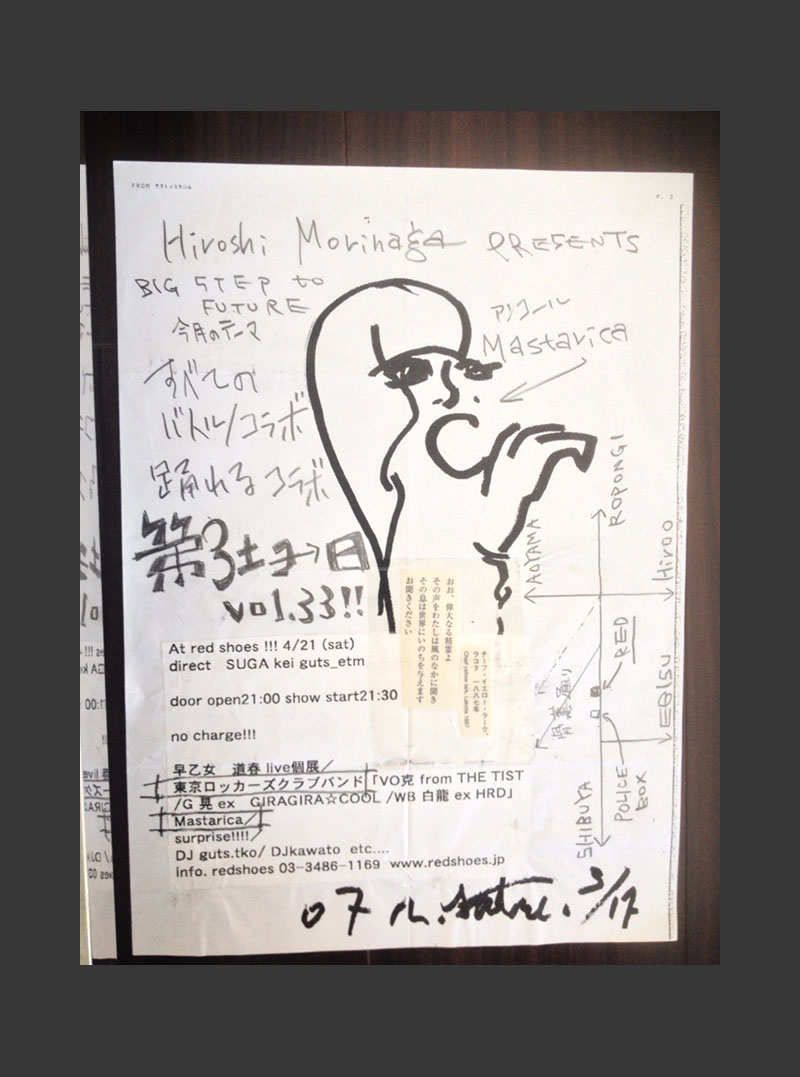 FROM サオトメミチハル
P. 3
Hiroshi Morinaga PRESENTS
BIG STEP to
FUTURE
今月のテーマ
すべての
バトル/コラボ
踊れるコラボ
アンコール
Mastarica
第3土ヨ→日
vol.33!!
おお、偉大なる精霊よ
その声をわたしは風のなかに聞き
その息は世界にいのちを与えます
お聞きください
チーフ・イエロー・ラーク、
ラコタ 一八八七年
Chief yellow lark, Lakota 1887
At red shoes !!! 4/21 (sat)
direct SUGA kei guts_etm
door open21:00 show start21:30
no charge!!!
早乙女 道春 live個展/
東京ロッカーズクラブバンド「VO克 from THE TIST
/G 晃 ex GIRAGIRA☆COOL /WB 白龍 ex HRD」
Mastarica/
surprise!!!!/
DJ guts.tko/ DJkawato etc....
info. redshoes 03-3486-1169 www.redshoes.jp
ROPONGI
AOYAMA
Hiroo
RED
骨董通り
EBISU
POLICE
BOX
SHIBUYA
07 3/17